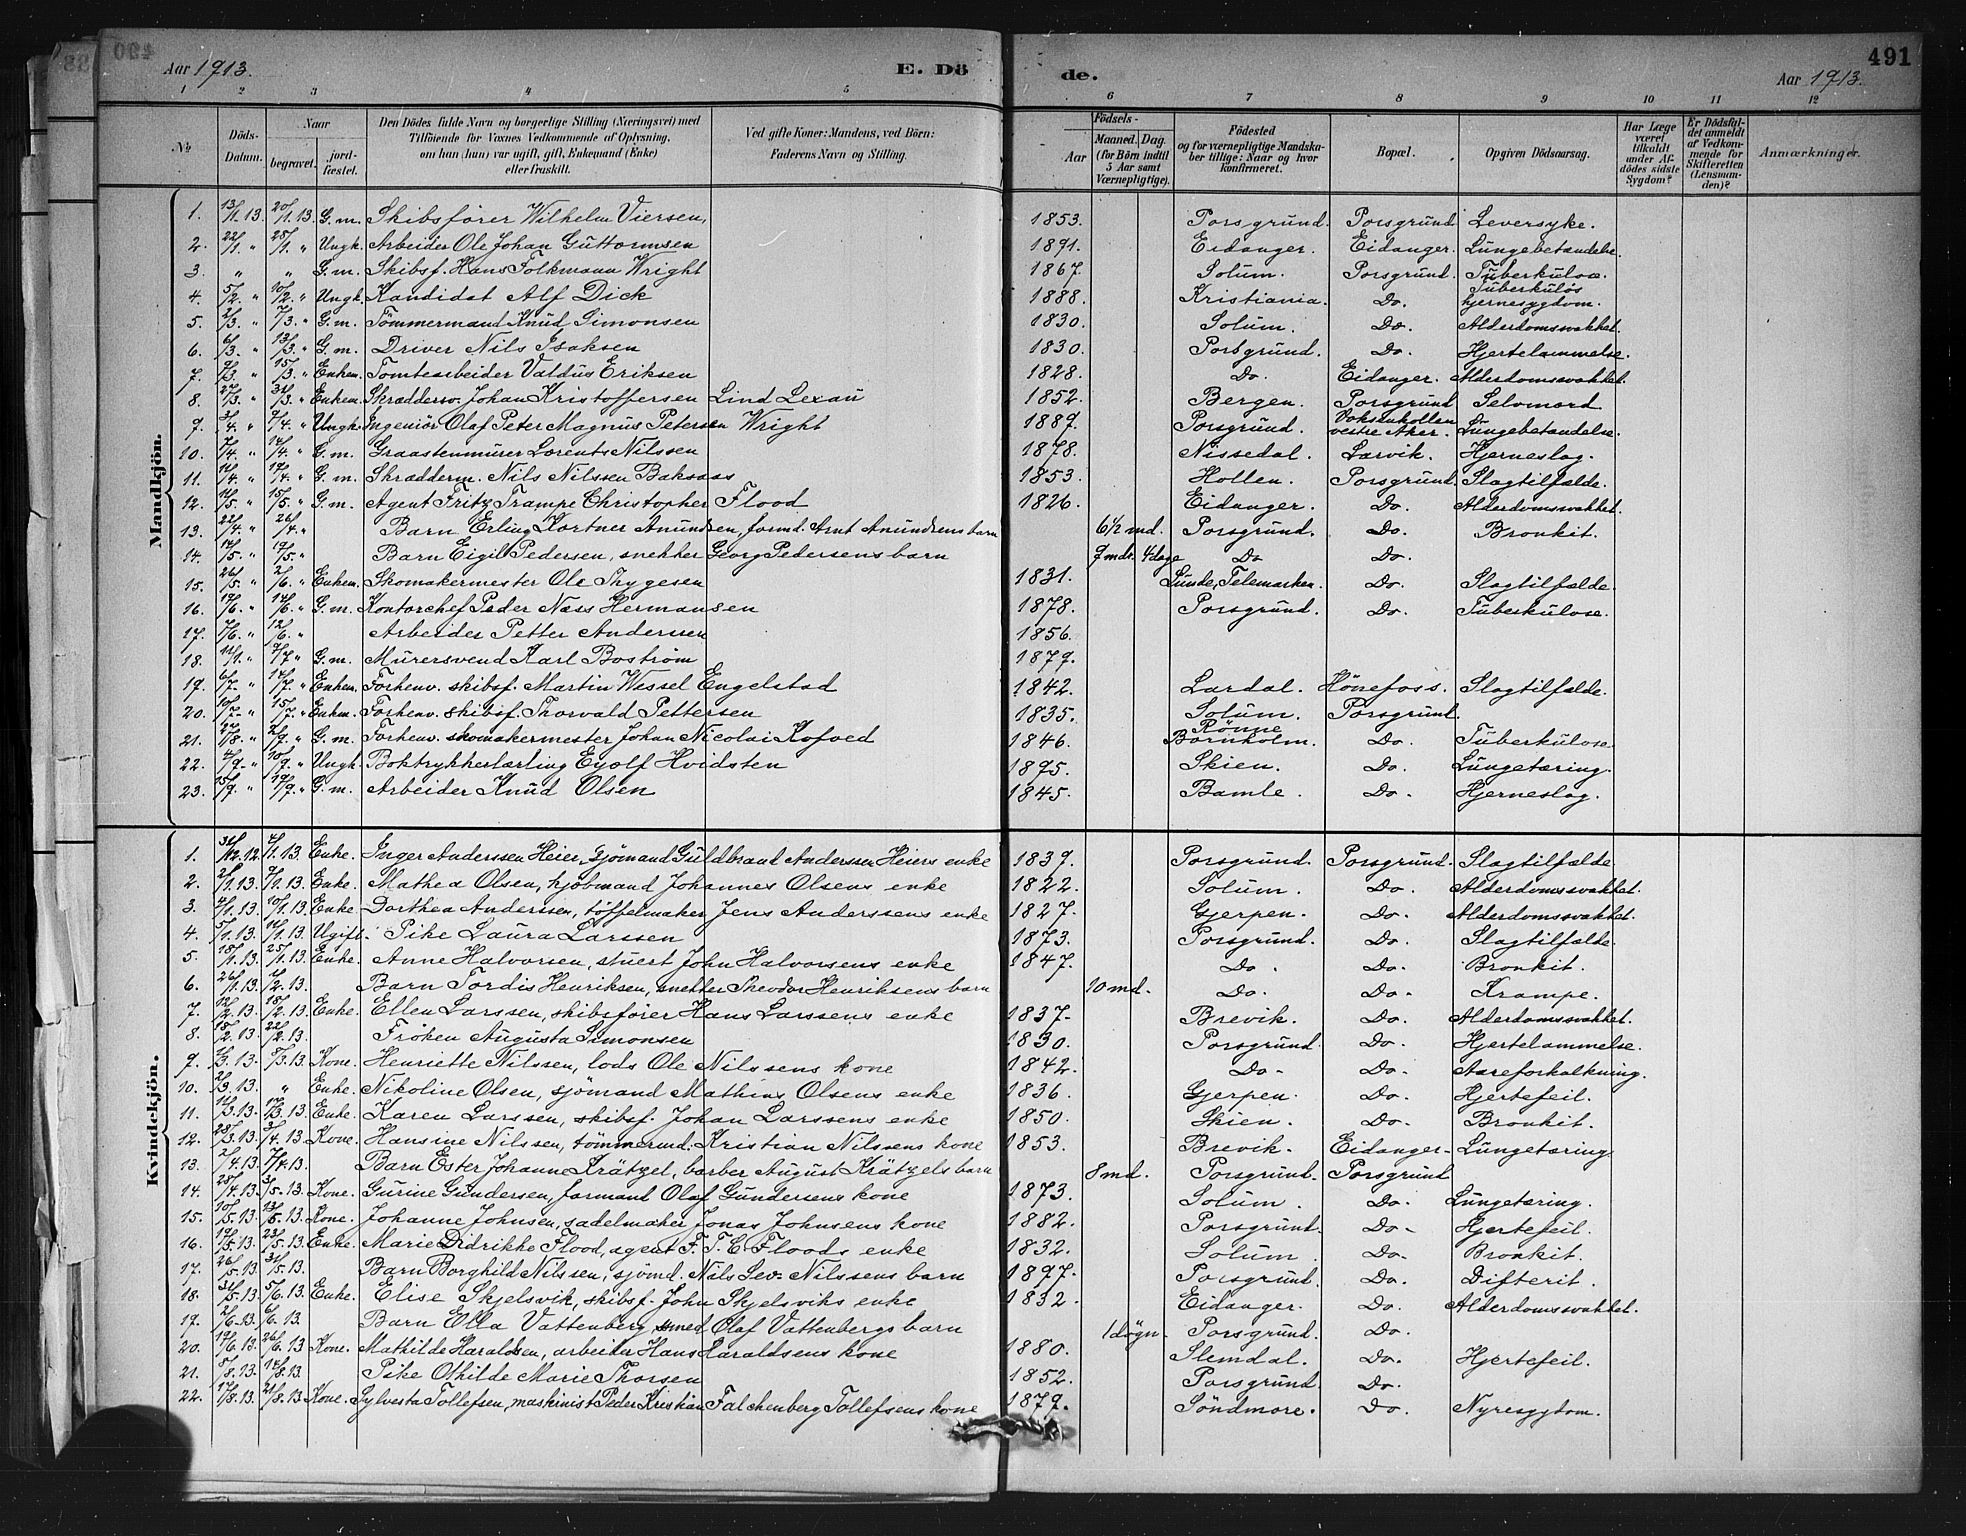 490
Aar 1913. E. Dö de. Aar 1913. 491
1 2 3 4 5 6 7 8 9 10 11 12
No Döds-Datum. Naar begravet. jord-fæstet. Den Dödes fulde Navn og borgerlige Stilling (Næringsvei) med Tilföiende for Voxnes Vedkommende af Oplysning, om han (hun) var ugift, gift, Enkemand (Enke) eller fraskilt. Ved gifte Koner: Mandens, ved Börn: Faderens Navn og Stilling. Födsels- Aar Maaned. Dag. (for Börn indtil 5 Aar samt Værnepligtige). Födested og for værnepligtige Mandska-ber tillige: Naar og hvor konfirmeret. Bopæl. Opgiven Dödsaarsag. Har Læge været tilkaldt under Af-dödes sidste Sygdom? Er Dödsfal-det anmeldt af Vedkom-mende for Skifteretten (Lensman-den)? Anmærkninger.
Mandkjön.
1. 13/1. 13. 20/1. 13. G. m. Skibsförer Wilhelm Viersen, 1853. Porsgrund. Porsgrund Leversyke.
2. 22/1 " 28/1. " Ungk. Arbeider Ole Johan Guttormsen 1891. Eidanger. Eidanger. Lungebetændelse.
3. " " G. m. Skibsf. Hans Folkmann Wright 1867. Solum. Porsgrund. Tuberkulose.
4. 5/2. " 10/2. " Ungk. Kandidat Alf Dick 1888. Kristiania. Do. Tuberkulös hjernesygdom.
5. 2/3. " 7/3. " G. m. Tömmermand Knud Simonsen 1830. Solum. Do. Alderdomssvakhet.
6. 6/3. " 13/3. " G. m. Driver Nils Isaksen 1830. Porsgrund. Do. Hjertelammelse.
7. 9/3. " 15/3. " Enkem. Tomtearbeider Valdus Eriksen 1828. Do. Eidanger. Alderdomssvakhet.
8. 27/3. " 31/3. " Enkem. Skræddersv. Johan Kristoffersen Lind Lexau 1852. Bergen. Porsgrund Selvmord.
9. 3/4. " 9/4. " Ungk. Ingeniör Olaf Peter Magnus Petersen Wright 1889. Porsgrund. Voksenkollen vestre Aker. Lungebetændelse.
10. 7/4. " 14/4. " G. m. Graastenmurer Lorents Nilssen 1878. Nissedal. Larvik. Hjerneslag.
11. 14/4. " 19/4. " G. m. Skrædderm. Nils Nilssen Baksaas 1853. Hollen. Porsgrund. Slagtilfælde.
12. 11/5. " 15/5. " G. m. Agent Fritz Trampe Christopher Flood 1826. Eidanger. Do. Alderdomssvakhet.
13. 22/4 " 26/4. " Barn Erling Kortner Anundsen, formd. Arnt Anundsens barn 6½ md. Porsgrund. Do. Bronkit.
14. 14/5. " 19/5. " Barn Eigill Pedersen, snekker Georg Pedersens barn 9 mdr. 4 dage Do Do.
15. 26/5. " 2/6. " Enkem. Skomakermester Ole Thygesen 1831. Lunde, Telemarken. Do. Slagtilfælde.
16. " 14/6. " G. m. Kontorchef Peder Næss Hermansen 1878. Porsgrund. Do. Tuberkulose.
17. 7/6. " 12/6. " Arbeider Petter Anderssen 1856.
18. " 9/7 " G. m. Murersvend Karl Boström 1879.
19. 6/7. " 14/7. " Enkem. Forhenv. skibsf. Martin Wessel Engelstad 1842. Lardal. Hönefoss. Slagtilfælde.
20. 10/7. " 15/7. " Enkem. Forhenv. skibsf. Thorvald Pettersen 1835. Solum. Porsgrund.
21. 27/8. " 2/9. " G. m. Forhenv. skomakermester Johan Nicolai Kofoed 1846. Rönne Bornholm. Do. Tuberkulose.
22. 4/9. " 10/9. " Ungk. Boktrykkerlærling Eyolf Hvidsten 1895. Skien. Do. Lungetæring.
23. 15/9. " 19/9. " G. m. Arbeider Knud Olsen 1845. Bamle. Do. Hjerneslag.
Kvindekjön.
1. 31/12. 12. 4/1. 13. Enke. Inger Anderssen Heier, Sjömand Guldbrand Anderssen Heiers enke 1839. Porsgrund. Porsgrund. Slagtilfælde
2. 2/1. 13. 7/1. 13. Enke. Mathea Olsen, kjöbmand Johannes Olsens enke 1822. Solum. Do. Alderdomssvakhet.
3. 4/1. 13. 10/1. 13. Enke Dorthea Anderssen, töffelmaker Jens Anderssens enke 1827. Gjerpen. Do. Alderdomssvakhet.
4. 5/1. 13. 11/1. 13. Ugift. Pike Laura Larssen 1873. Porsgrund. Do. Slagtilfælde.
5. 18/1. 13. 25/1. 13. Enke. Anne Halvorsen, stuert John Halvorsens enke 1847. Do. Do. Bronkit.
6. 26/1. 13. 1/2. 13. Barn Tordis Henriksen, snekker Theodor Henriksens barn 10 md. Do. Do. Krampe.
7. 12/2. 13. 18/2. 13. Enke. Ellen Larssen, skibsförer Hans Larssens enke 1837. Brevik. Do. Alderdomssvakhet.
8. 15/2. 13. 22/2. 13. Fröken Augusta Simonsen 1830. Porsgrund. Do. Hjertelammelse.
9. 1/3. 13. 8/3. 13. Kone. Henriette Nilssen, lods Ole Nilssens kone 1842. Do. Do. Aareforkalkning.
10. 2/3. 13. " Enke. Nikoline Olsen, sjömand Mathias Olsens enke 1836. Gjerpen. Do. Hjertefeil.
11. 12/3. 13. 17/3. 13. Enke. Karen Larssen, skibsf. Johan Larssens enke 1850. Skien. Do. Bronkit.
12. 28/3. 13. 3/4. 13. Kone. Hansine Nilssen, tömmermd. Kristian Nilssens kone 1853. Brevik. Eidanger. Lungetæring
13. 2/4. 13. 7/4. 13. Barn Ester Johanne Krätzel, barber August Krätzels barn 8 md. Porsgrund. Porsgrund
14. 25/4. 13. 3/5. 13. Kone. Gurine Gundersen, formand Olaf Gundersens kone 1873. Solum. Do. Lungetæring.
15. 10/5. 13. 13/5. 13. Kone. Johanne Johnsen, sadelmaker Jonas Johnsens kone 1882. Porsgrund. Do. Hjertefeil.
16. 19/5. 13. 23/5. 13. Enke. Marie Didrikke Flood, agent F. T. C. Floods enke 1832. Solum. Do. Bronkit.
17. 26/5. 13. 31/5. 13. Barn Borghild Nilssen, sjömd. Nils Sev. Nilssens barn 1897. Porsgrund. Do. Difterit.
18. 31/5. 13. 5/6. 13. Enke. Elise Skjelsvik, skibsf. John Skjelsviks enke 1832. Eidanger. Do. Alderdomssvakhet.
19. 2/6. 13. 6/6. 13. Barn Ella Vattenberg smed Olaf Vattenbergs barn 1 dögn. Porsgrund. Do.
20. 19/6. 13. 26/6. 13 Kone. Mathilde Haraldsen, arbeider Hans Haraldsens kone 1880. Slemdal. Do. Hjertefeil.
21. 8/8. 13. 14/8. 13 Pike Othilde Marie Thorsen 1852. Porsgrund. Do.
22. 17/8. 13. 21/8. 13 Kone. Sylvesta Tollefsen, maskinist Peder Kristian Falchenberg Tollefsens kone 1879. Söndmöre. Do. Nyresygdom.